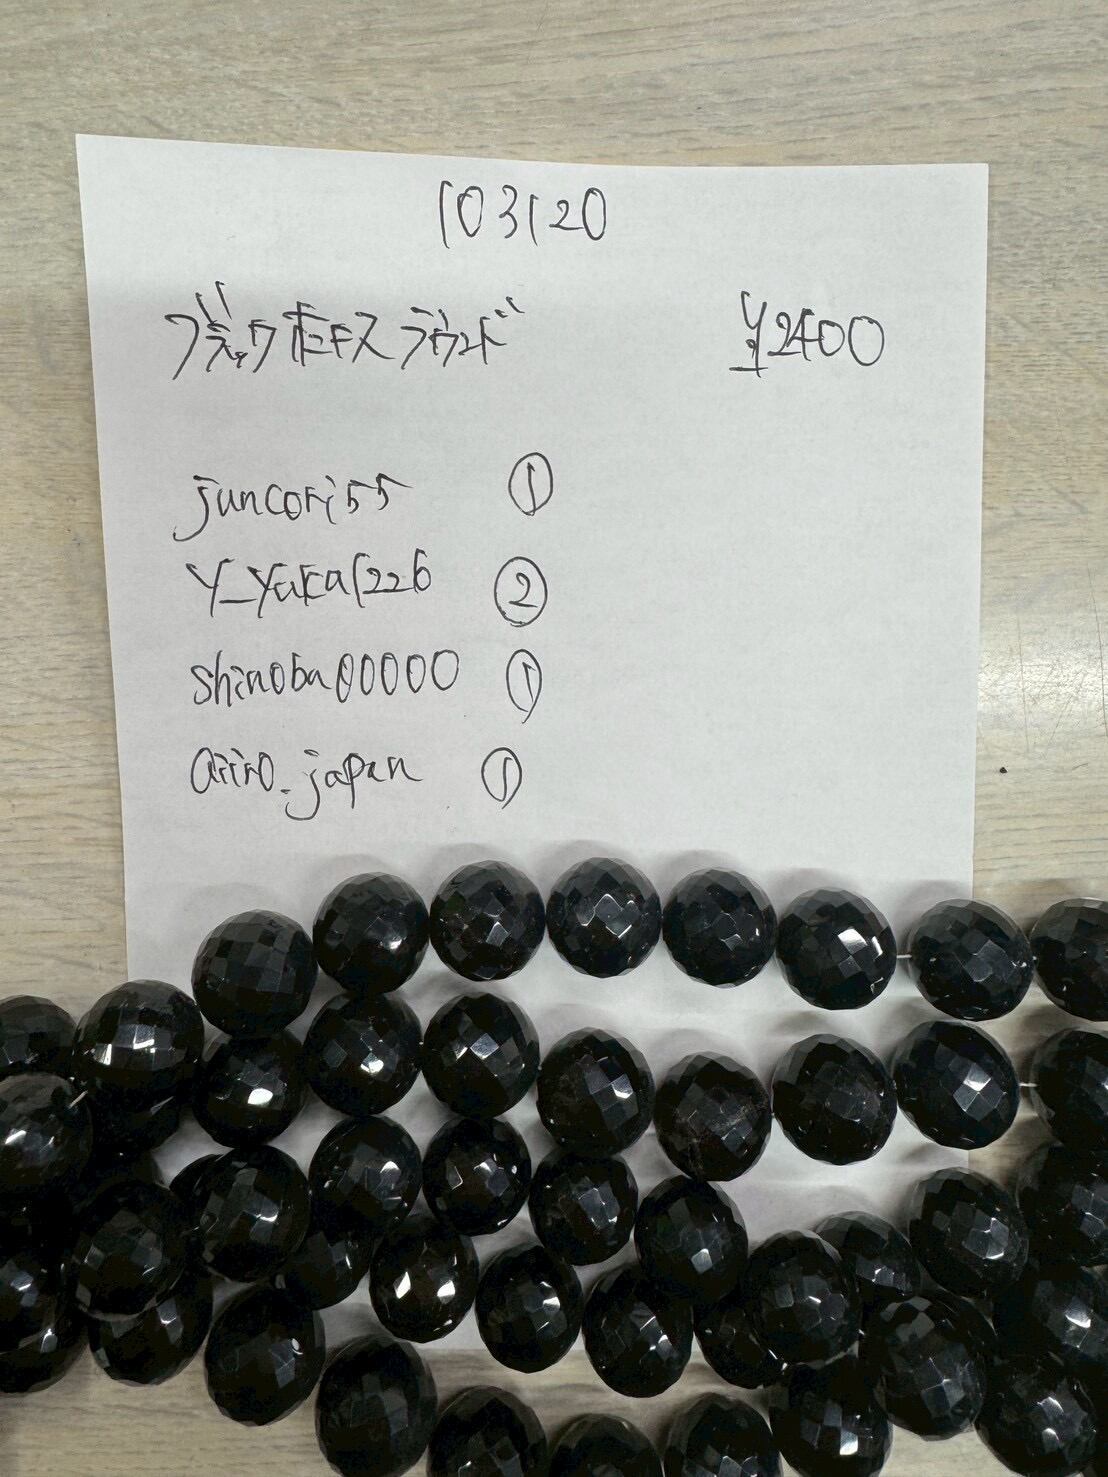 103120
ブラックオニキス ラウンド ¥2400
juncori55 ①
y_yuka1226 ②
shinoba00000 ①
airo_japan ①